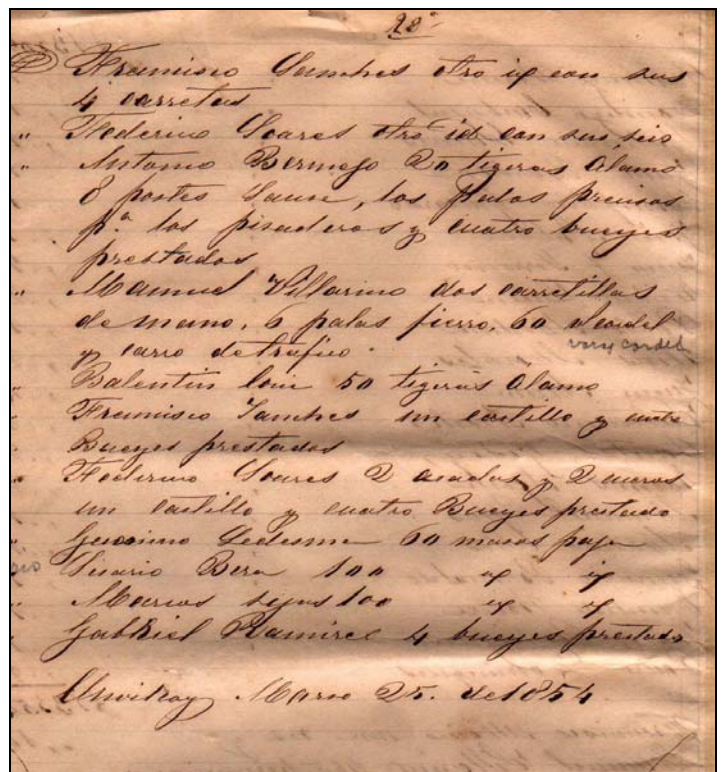 28ª
Framisco Sanches otro id con sus
4 carretas
" Federico Soares otro id con sus seis
" Antonio Bermejo 20 tigeras Alamo
8 postes Sause, los palos precisos
pª los pisaderos y cuatro bueyes
prestados
" Manuel Villarino dos carretillas
de mano, 6 palas fierro, 60 v cordel
y carro de trafico.
vara cordel
" Balentin 50 tigeras Alamo
Francisco Sanches un castillo y cuatro
Bueyes prestados
" Federico Soares 2 asadas y 2
un castillo y cuatro Bueyes prestado
" Geronimo Ledesma 60 masos paja
Bera 100 id id
" Marcos 100 id id
Gabkiel Ramires 4 bueyes prestado
Marso 25. de 1854